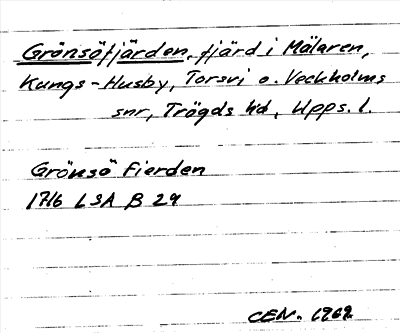 Grönsöfjärden, fjärd i Mälaren,
Kungs-Husby, Torsvi o. Veckholms
snr, Trögds hd, Upps. l.
Grönsö Fierden
1716 LSA B 29
CEN. 1969